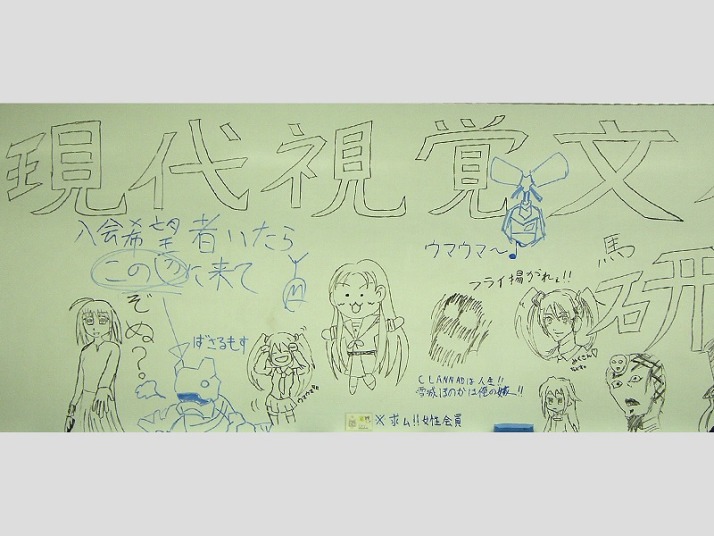 現代視覚文
研
馬
入会希望者いたら
この
に来て
ウマウマ〜♪
フライ揚がれぇ!!
ぞぬ?
ばさるもす
CLANNADは人生!!
雪城ほのかは俺の嫁!!
※求ム!!女性会員